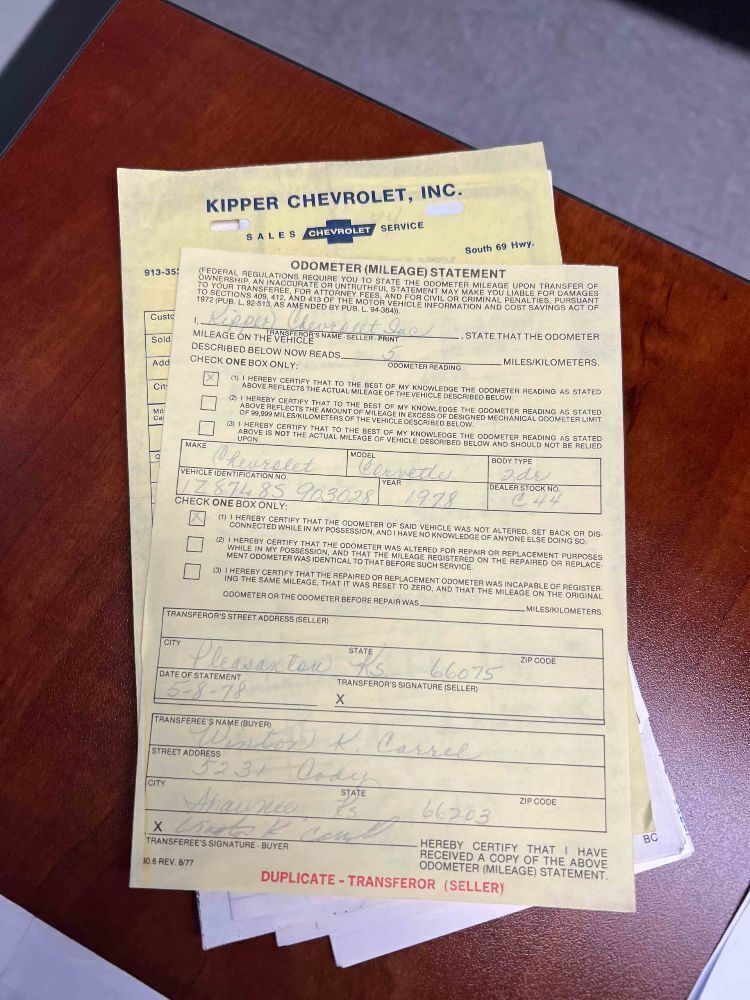 KIPPER CHEVROLET, INC.
SALES CHEVROLET SERVICE
South 69 Hwy.
913-352
Custo
Sold
Add
City
ODOMETER (MILEAGE) STATEMENT
(FEDERAL REGULATIONS REQUIRE YOU TO STATE THE ODOMETER MILEAGE UPON TRANSFER OF
OWNERSHIP. AN INACCURATE OR UNTRUTHFUL STATEMENT MAY MAKE YOU LIABLE FOR DAMAGES
TO YOUR TRANSFEREE, FOR ATTORNEY FEES, AND FOR CIVIL OR CRIMINAL PENALTIES, PURSUANT
TO SECTIONS 409, 412, AND 413 OF THE MOTOR VEHICLE INFORMATION AND COST SAVINGS ACT OF
1972 (PUB. L. 92-513, AS AMENDED BY PUB. L. 94-364)).
I, Kipper Chevrolet Inc , STATE THAT THE ODOMETER
TRANSFEROR'S NAME - SELLER - PRINT
MILEAGE ON THE VEHICLE
DESCRIBED BELOW NOW READS 5 MILES/KILOMETERS.
ODOMETER READING
CHECK ONE BOX ONLY:
X (1) I HEREBY CERTIFY THAT TO THE BEST OF MY KNOWLEDGE THE ODOMETER READING AS STATED
ABOVE REFLECTS THE ACTUAL MILEAGE OF THE VEHICLE DESCRIBED BELOW.
(2) I HEREBY CERTIFY THAT TO THE BEST OF MY KNOWLEDGE THE ODOMETER READING AS STATED
ABOVE REFLECTS THE AMOUNT OF MILEAGE IN EXCESS OF DESIGNED MECHANICAL ODOMETER LIMIT
OF 99,999 MILES/KILOMETERS OF THE VEHICLE DESCRIBED BELOW.
(3) I HEREBY CERTIFY THAT TO THE BEST OF MY KNOWLEDGE THE ODOMETER READING AS STATED
ABOVE IS NOT THE ACTUAL MILEAGE OF VEHICLE DESCRIBED BELOW AND SHOULD NOT BE RELIED
UPON.
MAKE MODEL BODY TYPE
Chevrolet Corvette 2dr
VEHICLE IDENTIFICATION NO. YEAR DEALER STOCK NO.
1Z87485 903028 1978 C44
CHECK ONE BOX ONLY:
X (1) I HEREBY CERTIFY THAT THE ODOMETER OF SAID VEHICLE WAS NOT ALTERED, SET BACK OR DIS-
CONNECTED WHILE IN MY POSSESSION, AND I HAVE NO KNOWLEDGE OF ANYONE ELSE DOING SO.
(2) I HEREBY CERTIFY THAT THE ODOMETER WAS ALTERED FOR REPAIR OR REPLACEMENT PURPOSES
WHILE IN MY POSSESSION, AND THAT THE MILEAGE REGISTERED ON THE REPAIRED OR REPLACE-
MENT ODOMETER WAS IDENTICAL TO THAT BEFORE SUCH SERVICE.
(3) I HEREBY CERTIFY THAT THE REPAIRED OR REPLACEMENT ODOMETER WAS INCAPABLE OF REGISTER-
ING THE SAME MILEAGE, THAT IT WAS RESET TO ZERO, AND THAT THE MILEAGE ON THE ORIGINAL
ODOMETER OR THE ODOMETER BEFORE REPAIR WAS MILES/KILOMETERS.
TRANSFEROR'S STREET ADDRESS (SELLER)
CITY STATE ZIP CODE
Pleasanton Ks 66075
DATE OF STATEMENT TRANSFEROR'S SIGNATURE (SELLER)
5-8-78 X
TRANSFEREE'S NAME (BUYER)
Winton K. Carrel
STREET ADDRESS
5231 Cody
CITY STATE ZIP CODE
Shawnee Ks 66203
X Winton K Carrel
TRANSFEREE'S SIGNATURE - BUYER
HEREBY CERTIFY THAT I HAVE
RECEIVED A COPY OF THE ABOVE
ODOMETER (MILEAGE) STATEMENT.
REV. 8/77
DUPLICATE - TRANSFEROR (SELLER)
BC